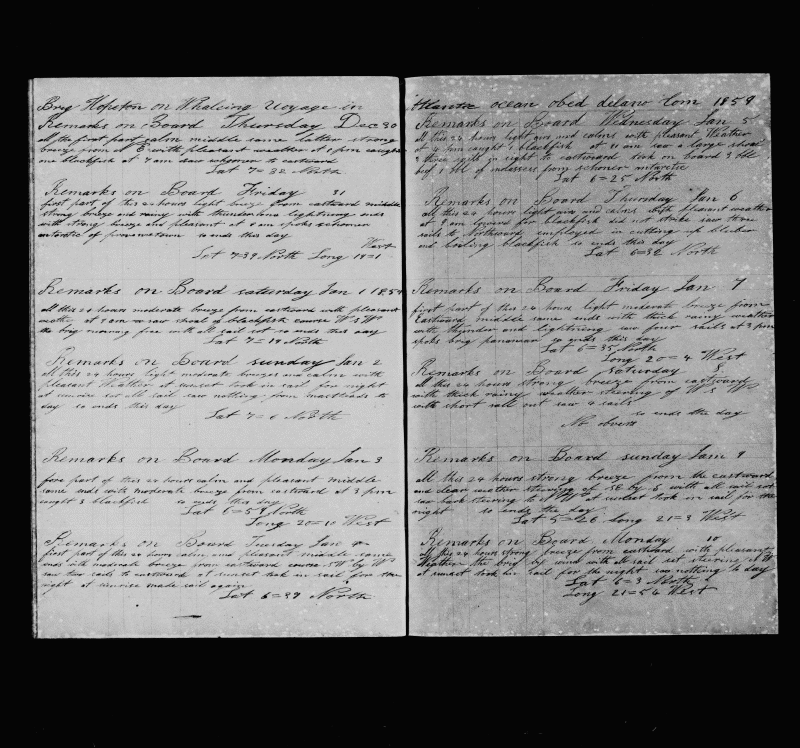 Brig Hopston on Whaleing Voyage in
Remarks on Board Thursday Dec 30
all the first part calm middle same latter strong
breeze from at E with pleasant weather at 1 pm caught
one blackfish at 7 am saw schooner to eastward
Lat 7=32 North
Remarks on Board Friday 31
first part of this 24 hours light breeze from eastward middle
strong breeze and rainy with thunder and lightning ends
with strong breeze and pleasant at 8 am spoke schooner
antarctic of provincetown so ends this day
West
Lat 7=39 North Long 19=1
Remarks on Board saturday Jan 1 1859
all this 24 hours moderate breeze from eastward with pleasant
weather at 7 am saw shoal of blackfish course W S W
the brig running free with all sail set so ends this day
Lat 7=19 North
Remarks on Board sunday Jan 2
all this 24 hours light moderate breezes and calm with
pleasant Weather at sunset took in sail for night
at sunrise set all sail saw nothing from mastheads to
day so ends this day
Lat 7=6 North
Remarks on Board Monday Jan 3
fore part of this 24 hours calm and pleasant middle
same ends with moderate breeze from eastward at 3 pm
caught 3 blackfish so ends this day
Lat 6=59 North
Long 20=10 West
Remarks on Board Tuesday Jan 4
first part of this 24 hours calm and pleasant middle same
ends with moderate breeze from eastward course SW by W
saw two sails to eastward at sunset took in sail for the
night at sunrise made sail again
Lat 6=37 North
Atlantic ocean obed delano Com 1859
Remarks on Board Wednesday Jan 5
all this 24 hours light airs and calms with pleasant Weather
at 4 pm caught 1 blackfish at 11 am saw a large shoal
3 three sails in sight to eastward took on board 3 bbl
beef 1 bbl of molasses from schoner antarctic
Lat 6=25 North
Remarks on Board Thursday Jan 6
all this 24 hours light airs and calms with pleasant weather
at 8 am lowered for blackfish did not strike saw three
sails to Northward employed in cutting up blubber
and boiling blackfish so ends this day
Lat 6=32 North
Remarks on Board Friday Jan 7
first part of this 24 hours light moderate breeze from
Eastward middle same ends with thick rainy weather
with thunder and lightning saw four sails at 3 pm
spoke brig so ends this day
Lat 6=35 North
Long 20=4 West
Remarks on Board saturday 8
all this 24 hours strong breeze from eastward
with thick rainy weather steering of W S W
with short sail out saw 4 sails
so ends the day
No observ
Remarks on Board sunday Jan 9
all this 24 hours strong breeze from the eastward
and clear weather steering of SE by S with all sail set
saw bark steering to at sunset took in sail for the
night so ends the day
Lat 5=26 Long 21=3 West
Remarks on Board Monday 10
all this 24 hours strong breeze from eastward with pleasant
Weather the brig by wind with all sail set steering
at sunset took in sail for the night saw nothing to day
Lat 4=3 North
Long 21=54 West